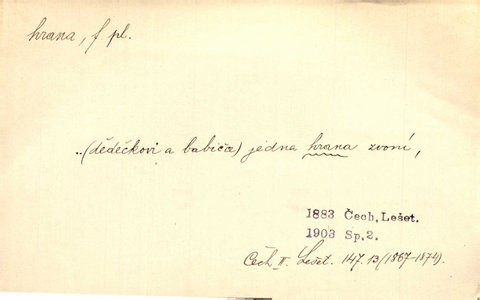 hrana, f. pl.
..(dědečkovi a babičce) jedna hrana zvoní,
1883 Čech, Lešet.
1903 Sp. 2.
Čech II. Lešet. 147. 13 (1867–1874).